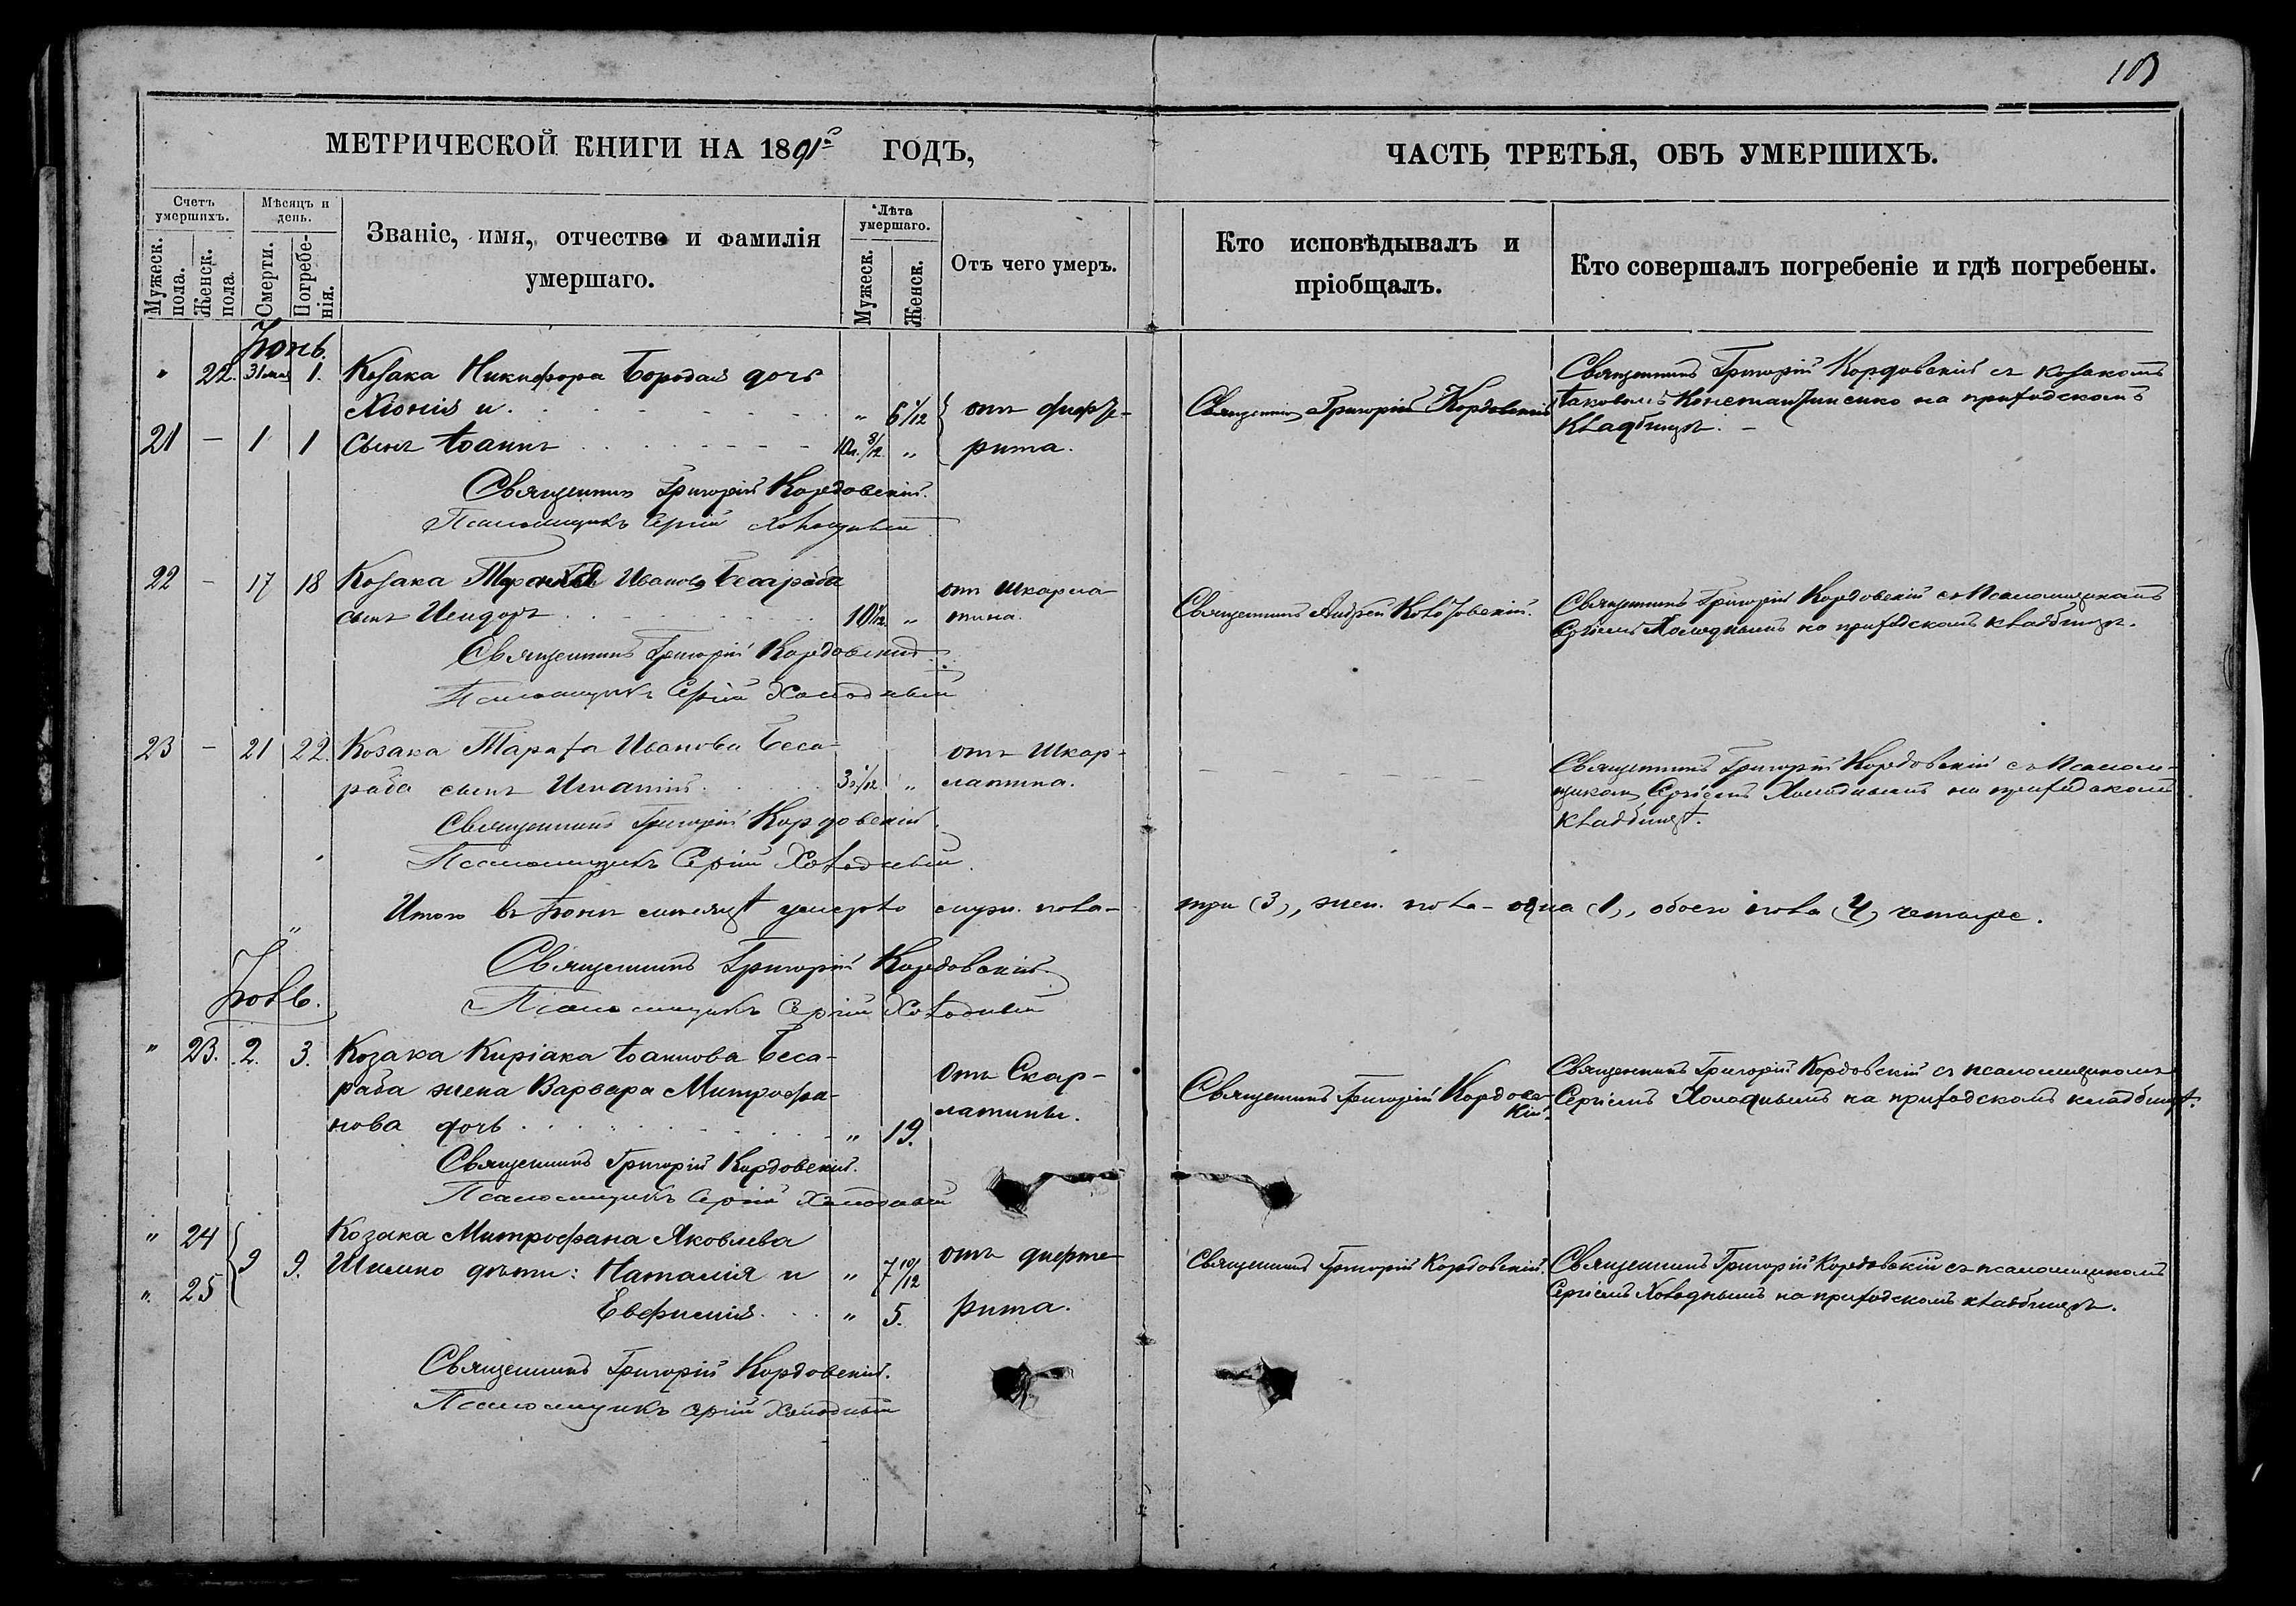 103
МЕТРИЧЕСКОЙ КНИГИ НА 1891й ГОДЪ,
ЧАСТЬ ТРЕТЬЯ, ОБЪ УМЕРШИХЪ.
Счетъ умершихъ.
Мужеск. пола.
Женск. пола.
Мѣсяцъ и день.
Смерти.
Погребенія.
Званіе, имя, отчество и фамилія
умершаго.
Лѣта умершаго.
Мужеск.
Женск.
Отъ чего умеръ.
Кто исповѣдывалъ и
пріобщалъ.
Кто совершалъ погребеніе и гдѣ погребены.
Іюнь.
" 22. 31 мая 1. Козака Никифора Бородая дочь
Хіонія и " 6 1/12 отъ дифте-
21 – 1 1 сынъ Іоаннъ 10 л. 3/12 " рита.
Священникъ Григорій Кордовскій
Священникъ Григорій Кордовскій съ козакомъ
Іаковомъ Константиненко на приходскомъ
кладбищѣ. –
Священникъ Григорій Кордовскій.
Псаломщикъ Сергій Холодный
22 – 17 18 Козака Иванова Бесараба отъ шкарла
сынъ Исидоръ 10 1/12 " тина.
Священникъ Андрей
Священникъ Григорій Кордовскій съ псаломщикомъ
Сергіемъ Холоднымъ на приходскомъ кладбищѣ.
Священникъ Григорій Кордовскій
Псаломщикъ Сергій Холодный
23 – 21 22. Козака Тараха Иванова Беса- отъ шкар-
раба сынъ Игнатій 3 1/12 " латина.
Священникъ Григорій Кордовскій съ псалом-
щикомъ Сергіемъ Холоднымъ на приходскомъ
кладбищѣ.
Священникъ Григорій Кордовскій.
Псаломщикъ Сергій Холодный.
Итого въ Іюнѣ мѣсяцѣ умерло муж. пола – три (3), жен. пола – одна (1), обоего пола (4) четыре.
Священникъ Григорій Кордовскій.
Псаломщикъ Сергій Холодный
Іюль.
" 23. 2. 3. Козака Киріака Іоаннова Беса-
раба жена Варвара Митрофа- Отъ Скар-
нова дочь " 19. латины.
Священникъ Григорій Кордовс-
кій.
Священникъ Григорій Кордовскій съ псаломщикомъ
Сергіемъ Холоднымъ на приходскомъ кладбищѣ.
Священникъ Григорій Кордовскій.
Псаломщикъ Сергій Холодный
" 24 Козака Митрофана Яковлева
9 9. Шилко дѣти: Наталія и " 7 10/12 отъ дифте-
" 25 Евфимія " 5. рита.
Священникъ Григорій Кордовскій.
Священникъ Григорій Кордовскій съ псаломщикомъ
Сергіемъ Холоднымъ на приходскомъ кладбищѣ.
Священникъ Григорій Кордовскій.
Псаломщикъ Сергій Холодный